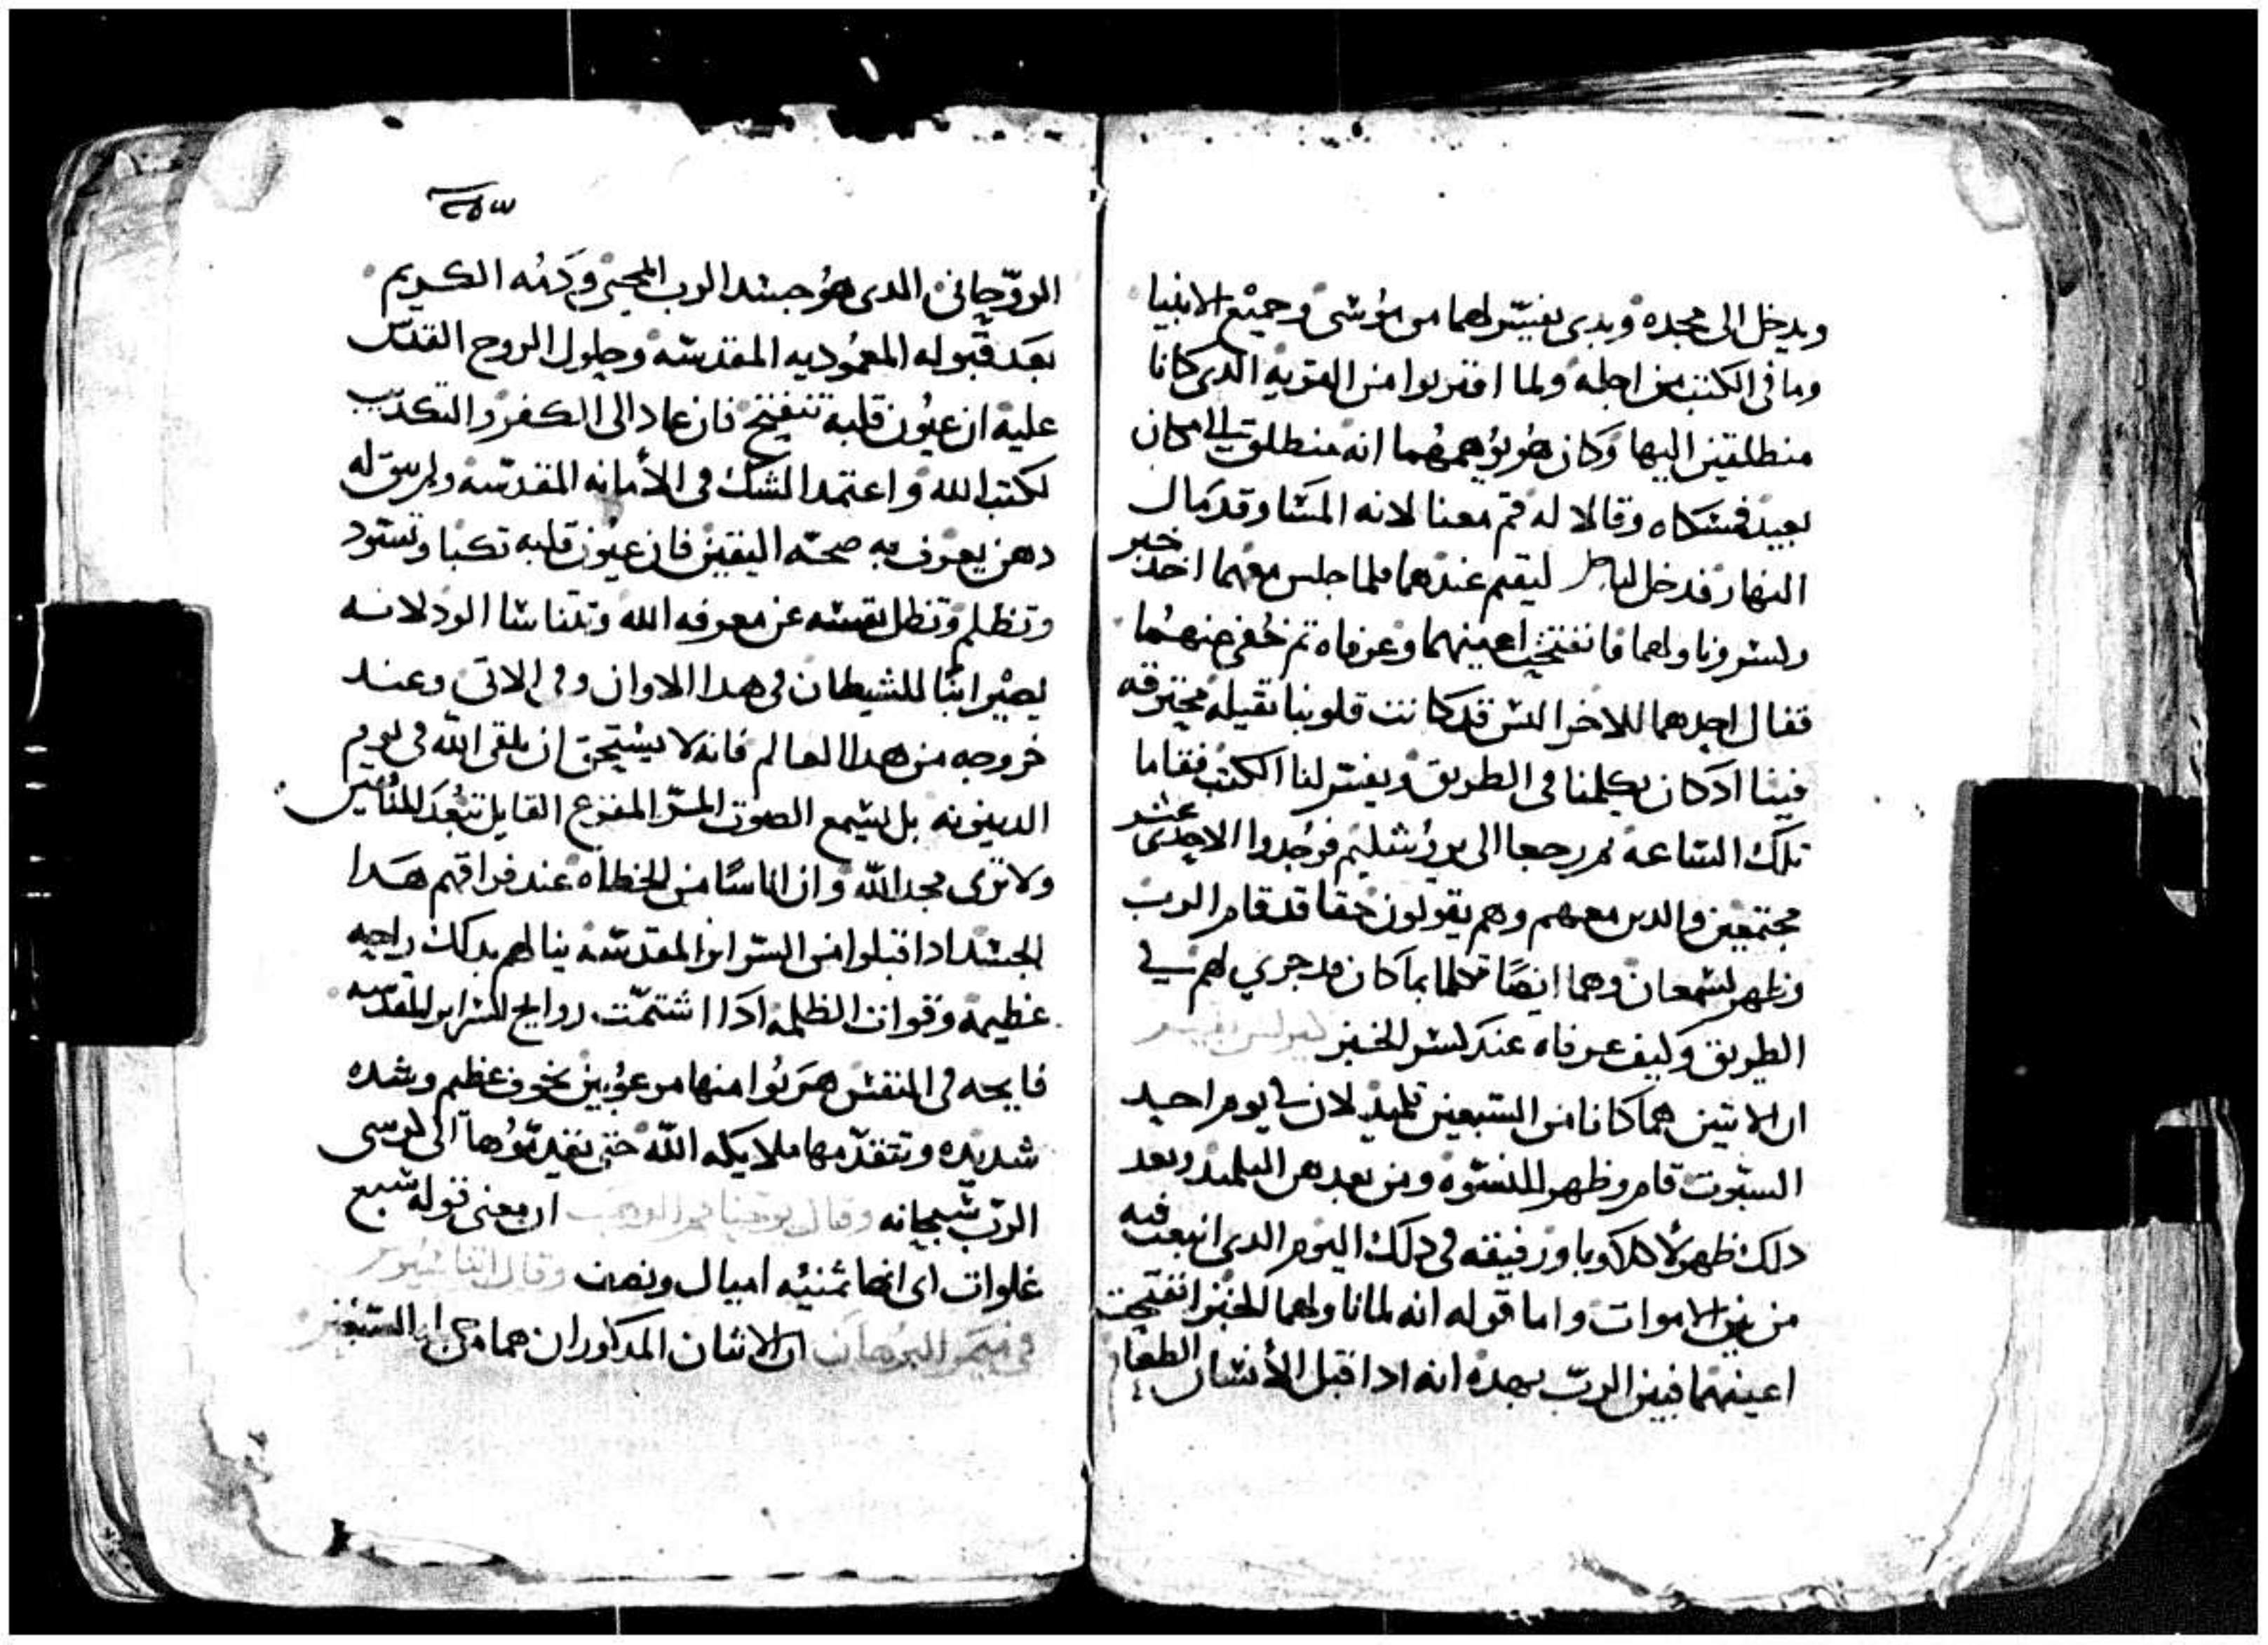 ويدخل الى مجده وبدى يفسر لهما من موسى وجميع الانبيا
وما في الكتب من اجله ولما اقتربوا من القريه الدى كانا
منطلقين اليها وكان هو يوهمهما انه منطلق الى مكان
بعيد فمسكاه وقالا له قم معنا لانه المسا وقد مال
النهار فدخل ليقيم عندهما فلما جلس معهما اخد خبز
وكسر وناولهما فانفتحت اعينهما وعرفاه ثم خفى عنهما
فقال احدهما للاخر اليس قد كانت قلوبنا تقيله محترقه
فينا اد كان يكلمنا في الطريق ويفسر لنا الكتب فقاما
تلك الساعه ورجعا الى يروشليم فوجدوا الاحدى عشر
مجتمعين والدين معهم وهم يقولون حقا قد قام الرب
وظهر لسمعان وهما ايضا تكلما بما كان قد جرى لهم في
الطريق وكيف عرفاه عند كسر الخبز
ان الاتنين هما كانا من السبعين تلميد لان في يوم احد
السبوت قام وظهر للنسوه ومن بعدهن التلميد وبعد
دلك ظهر لاكلاوبا ورفيقه في دلك اليوم الدى انبعت فيه
من بين الاموات واما قوله انه لما ناولهما الخبز انفتحت
اعينهما فبين الرب بهده انه ادا قبل الأنسان الطعام
الروحانى الدى هو جسد الرب المحيى ودمه الكريم
بعد قبوله المعموديه المقدسه وحلول الروح القدس
عليه ان عيون قلبه تنفتح فان عاد الى الكفر والتكديب
لكتب الله واعتمد الشك في الأمانه المقدسه ولم يبق له
دهن يعرف به صحه اليقين فان عيون قلبه تكبا وتسود
وتظلم وتظل نفسه عن معرفه الله وتتناسا الود لانه
يصير ابنا للشيطان في هدا الاوان وفي الاتى وعند
خروجه من هدا العالم فانه لا يستحق ان يلقى الله في يوم
الدينونه بل يسمع الصوت المر المفزع القايل تبعد المنافقين
ولا ترى مجد الله وان اناسا من الخطاه عند فراقهم هدا
الجسد ادا قبلوا من السراير المقدسه ينالهم بدلك راحه
عظيمه وقوات الظلمه ادا اشتمت روايح السراير المقدسه
فايحه في النفس هربوا منها مرعوبين بخوف عظيم وشده
شديده وتتقدمها ملايكه الله حتى يقدموها الى كرسى
الرب سبحانه وقال يوحنا فم الدهب ان معنى قوله سبع
غلوات اى انها ثمنيه اميال ونصف وقال
في ميمر البرهان ان الاتنان المدكوران هما من السبعين